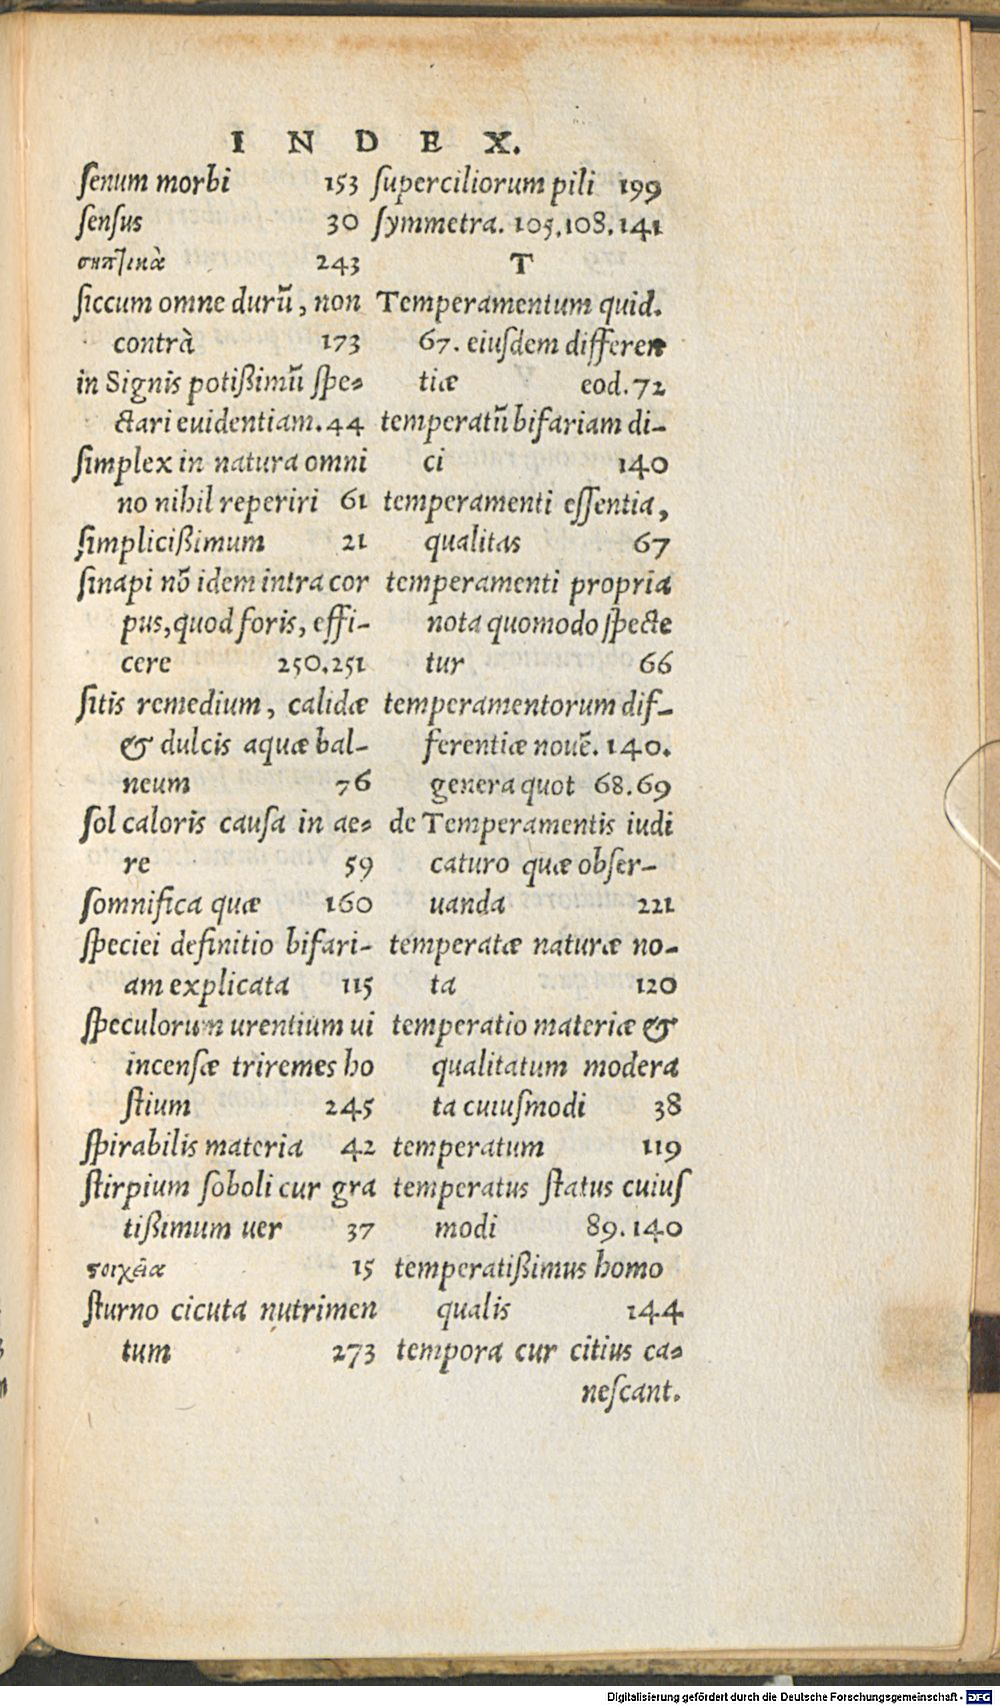 INDEX.
ſenum morbi 153
ſenſus 30
σηπτικὰ 243
ſiccum omne durū, non
contrà 173
in Signis potißimū ſpe-
ctari euidentiam. 44
ſimplex in natura omni
no nihil reperiri 61
ſimplicißimum 21
ſinapi nō idem intra cor
pus, quod foris, effi-
cere 250.251
ſitis remedium, calidæ
& dulcis aquæ bal-
neum 76
ſol caloris cauſa in ae-
re 59
ſomnifica quæ 160
ſpeciei definitio bifari-
am explicata 115
ſpeculorum urentium ui
incenſæ triremes ho
ſtium 245
ſpirabilis materia 42
ſtirpium ſoboli cur gra
tißimum uer 37
ϛοιχεῖα 15
ſturno cicuta nutrimen
tum 273
ſuperciliorum pili 199
ſymmetra. 105.108.141
T
Temperamentum quid.
67. eiuſdem differen
tiæ eod. 72
temperatū bifariam di-
ci 140
temperamenti eſſentia,
qualitas 67
temperamenti propria
nota quomodo ſpecte
tur 66
temperamentorum dif-
ferentiæ nouē. 140.
genera quot 68.69
de Temperamentis iudi
caturo quæ obſer-
uanda 221
temperatæ naturæ no-
ta 120
temperatio materiæ &
qualitatum modera
ta cuiuſmodi 38
temperatum 119
temperatus ſtatus cuiuſ
modi 89.140
temperatißimus homo
qualis 144
tempora cur citius ca-
neſcant.
Digitalisierung gefördert durch die Deutsche Forschungsgemeinschaft - DFG